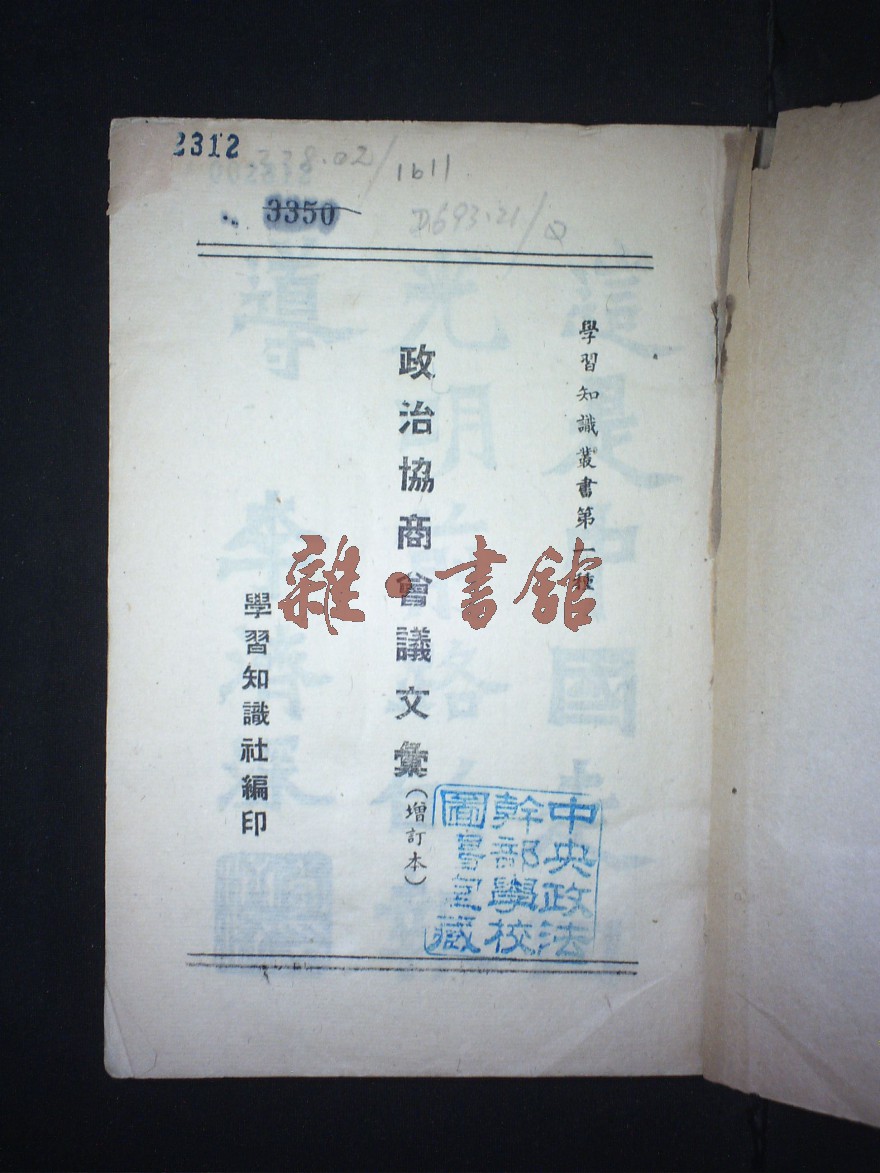 2312
338.02/1611
3350
D693.21/Q
學習知識叢書第一種
政治協商會議文彙(增訂本)
學習知識社編印
雜·書館
中央政法
幹部學校
圖書室藏